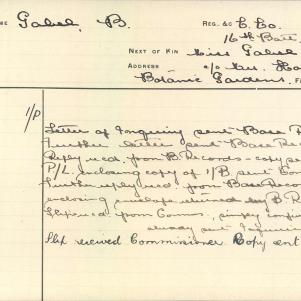 ME Gabel, B. REG. &C E. Co.
16th Batt.
NEXT OF KIN Miss Gabel
ADDRESS c/o Mrs. Ha
Botanic Gardens
1/P
Letter of Inquiry sent Base R
Further letter sent Base Rec
Reply rcd. from B. Records - copy se
P/L. enclosing copy of 1/B sent Com
Further reply rcd. from Base Recor
enclosing envelope returned by B. R
from Commr. simply
already sent
received Commissioner Copy sent